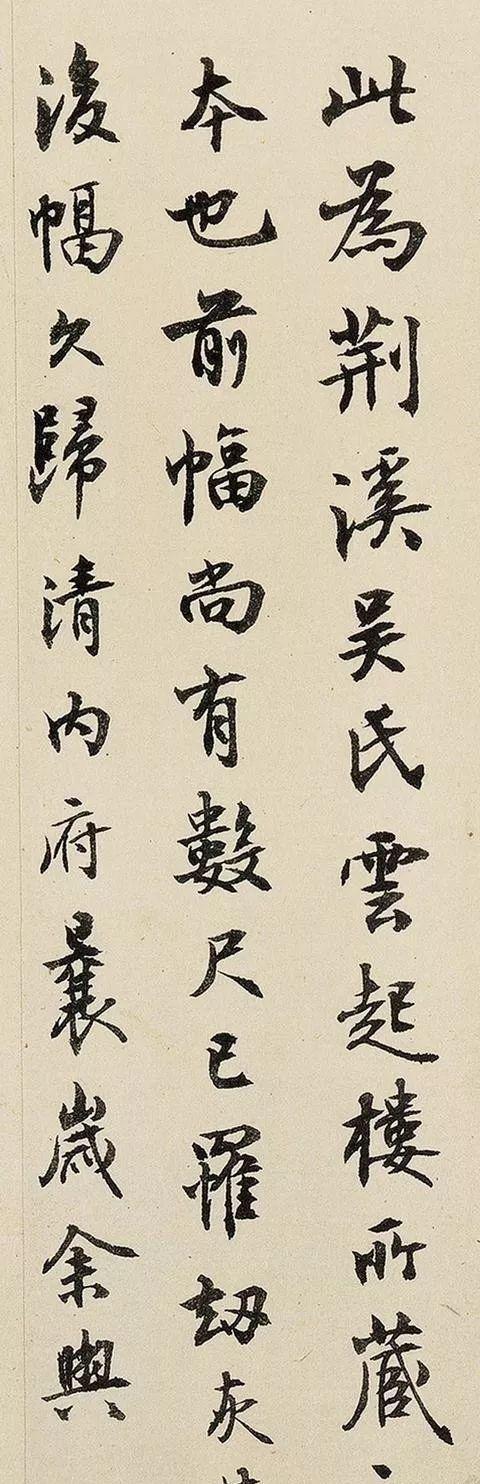 此為荆溪吳氏雲起樓所蔵
本也前幅尚有數尺已罹劫灰
後幅久歸清内府曩歲余與